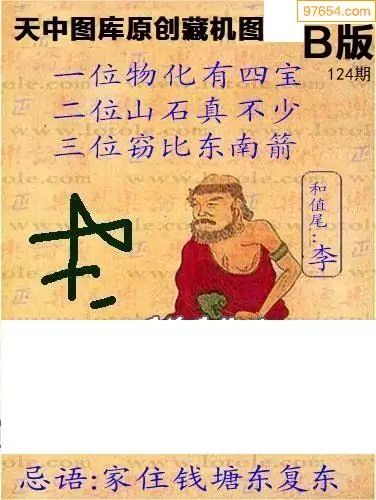 97654.com
天中图库原创藏机图
B版
124期
一位物化有四宝
二位山石真不少
三位窃比东南箭
和值尾:李
www.lotole.com
忌语:家住钱塘东复东